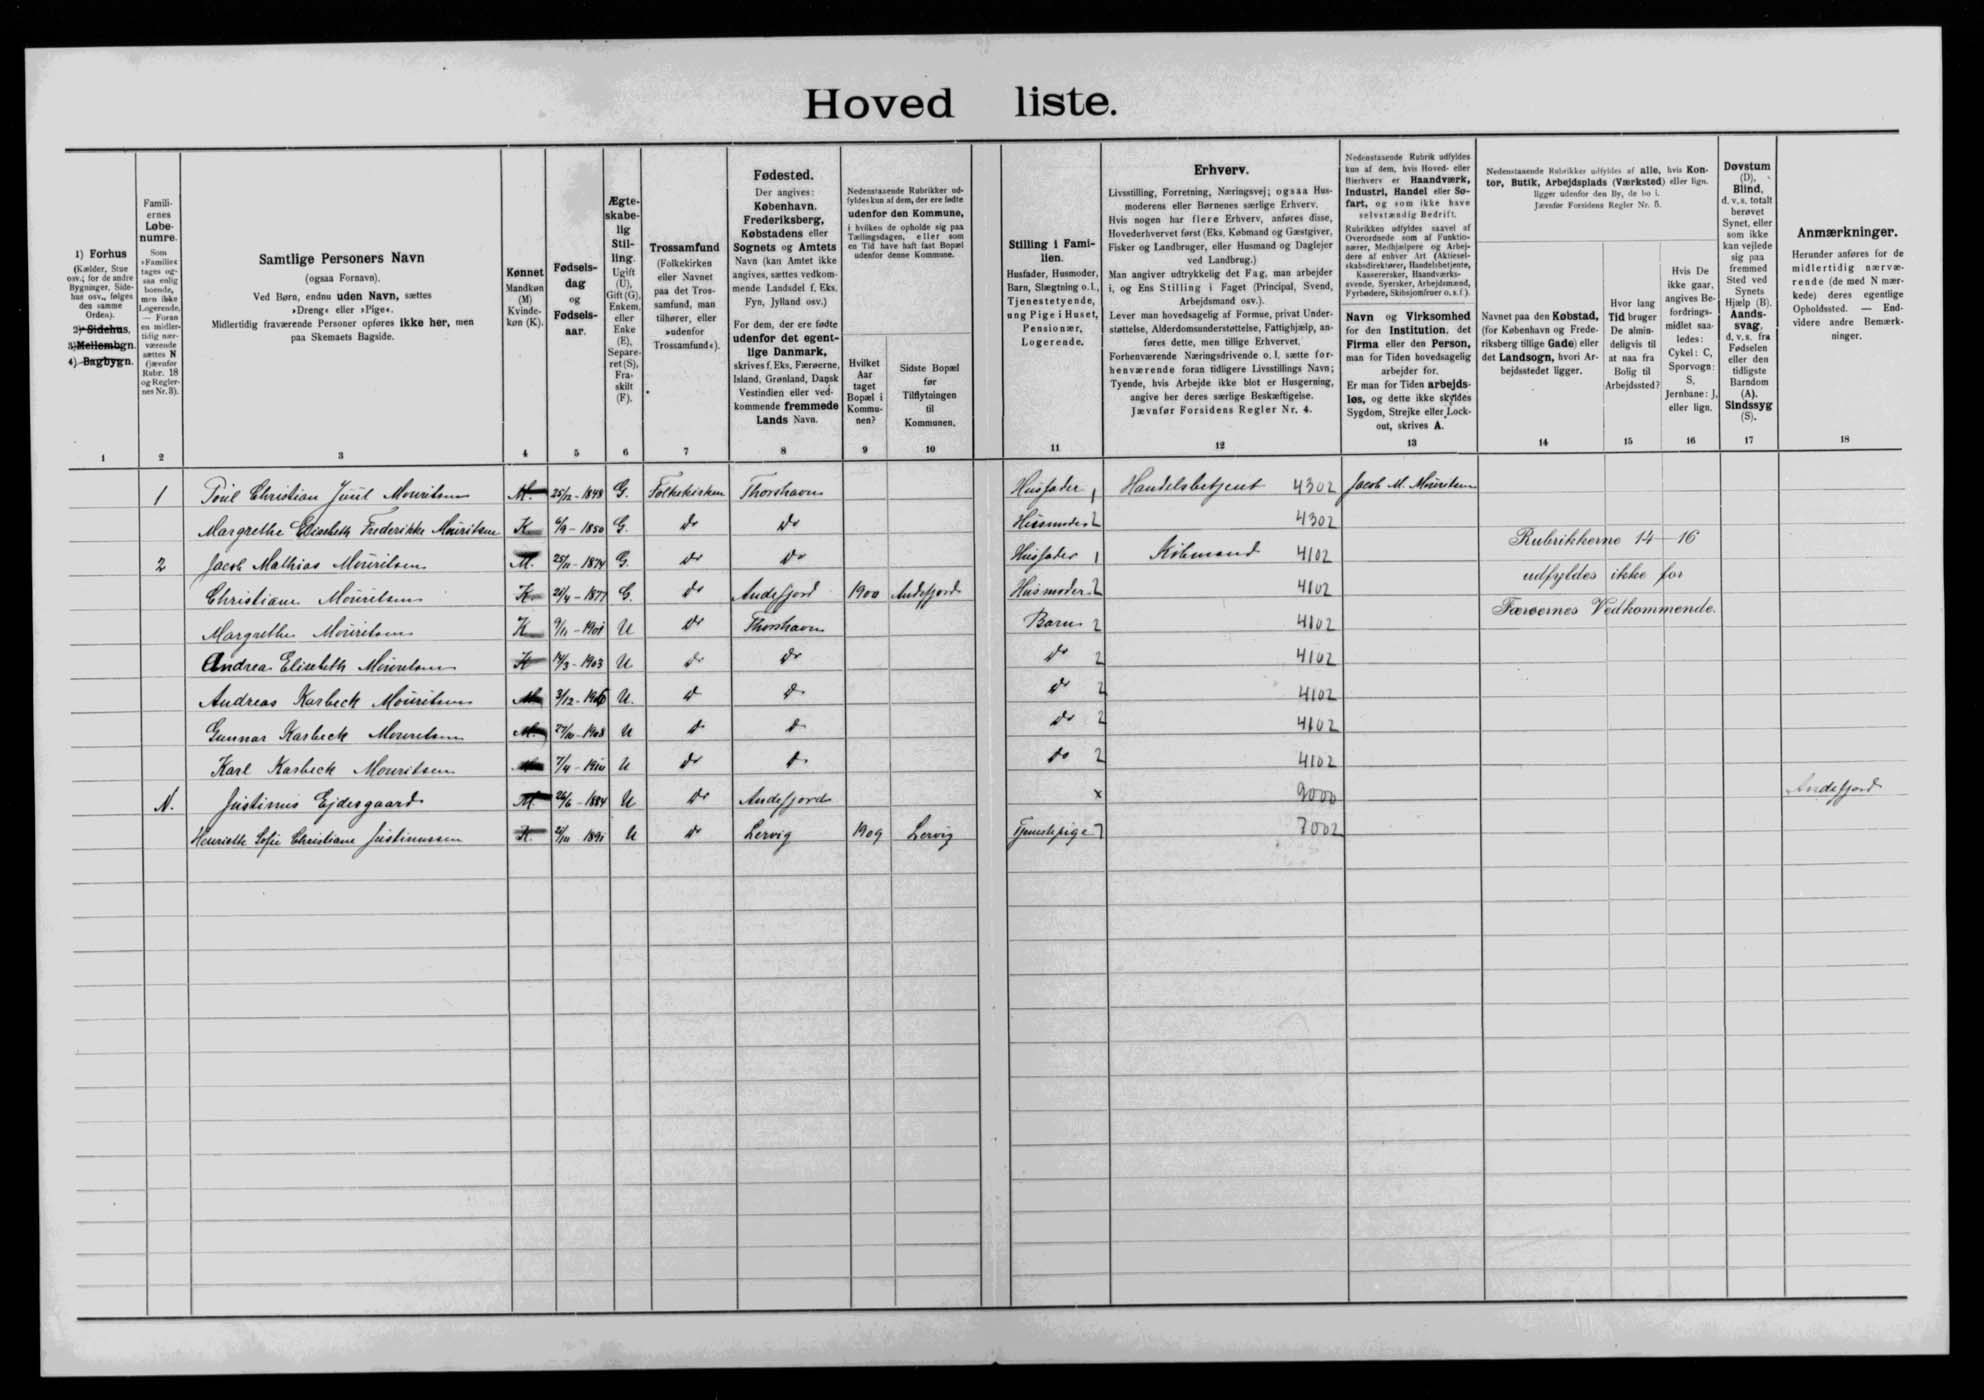 Hoved liste.
1) Forhus
(Kælder, Stue
osv.; for de andre
Bygninger, Side-
hus osv., følges
den samme
Orden).
2) Sidehus,
3) Mellembgn.
4) Bagbygn.
Famili-
ernes
Løbe-
numre.
Som
»Familie«
tages og-
saa enlig
boende,
men ikke
Logerende.
— Foran
en midler-
tidig nær-
værende
sættes N
(jævnfør
Rubr. 18
og Regler-
nes Nr. 3).
Samtlige Personers Navn
(ogsaa Fornavn).
Ved Børn, endnu uden Navn, sættes
»Dreng« eller »Pige«.
Midlertidig fraværende Personer opføres ikke her, men
paa Skemaets Bagside.
Kønnet
Mandkøn
(M)
Kvinde-
køn (K).
Fødsels-
dag
og
Fødsels-
aar.
Ægte-
skabe-
lig
Stil-
ling.
Ugift
(U),
Gift (G),
Enkem.
eller
Enke
(E),
Separe-
ret (S),
Fra-
skilt
(F).
Trossamfund
(Folkekirken
eller Navnet
paa det Tros-
samfund, man
tilhører, eller
»udenfor
Trossamfund«).
Fødested.
Der angives:
København,
Frederiksberg,
Købstadens eller
Sognets og Amtets
Navn (kan Amtet ikke
angives, sættes vedkom-
mende Landsdel f. Eks.
Fyn, Jylland osv.)
For dem, der ere fødte
udenfor det egent-
lige Danmark,
skrives f. Eks. Færøerne,
Island, Grønland, Dansk
Vestindien eller ved-
kommende fremmede
Lands Navn.
Nedenstaaende Rubrikker ud-
fyldes kun af dem, der ere fødte
udenfor den Kommune,
i hvilken de opholde sig paa
Tællingsdagen, eller som
en Tid have haft fast Bopæl
udenfor denne Kommune.
Hvilket
Aar
taget
Bopæl i
Kommu-
nen?
Sidste Bopæl
før
Tilflytningen
til
Kommunen.
Stilling i Fami-
lien.
Husfader, Husmoder,
Barn, Slægtning o.l.,
Tjenestetyende,
ung Pige i Huset,
Pensionær,
Logerende.
Erhverv.
Livsstilling, Forretning, Næringsvej; ogsaa Hus-
moderens eller Børnenes særlige Erhverv.
Hvis nogen har flere Erhverv, anføres disse,
Hovederhvervet først (Eks. Købmand og Gæstgiver,
Fisker og Landbruger, eller Husmand og Daglejer
ved Landbrug.)
Man angiver udtrykkelig det Fag, man arbejder
i, og Ens Stilling i Faget (Principal, Svend,
Arbejdsmand osv.).
Lever man hovedsagelig af Formue, privat Under-
støttelse, Alderdomsunderstøttelse, Fattighjælp, an-
føres dette, men tillige Erhvervet.
Forhenværende Næringsdrivende o. l. sætte for-
henværende foran tidligere Livsstillings Navn;
Tyende, hvis Arbejde ikke blot er Husgerning,
angive her deres særlige Beskæftigelse.
Jævnfør Forsidens Regler Nr. 4.
Nedenstaaende Rubrik udfyldes
kun af dem, hvis Hoved- eller
Bierhverv er Haandværk,
Industri, Handel eller Sø-
fart, og som ikke have
selvstændig Bedrift.
Rubrikken udfyldes saavel af
Overordnede som af Funktio-
nærer, Medhjælpere og Arbej-
dere af enhver Art (Aktiesel-
skabsdirektører, Handelsbetjente,
Kassserersker, Haandværks-
svende, Syersker, Arbejdsmænd,
Fyrbødere, Skibsjomfruer o.s.f.).
Navn og Virksomhed
for den Institution, det
Firma eller den Person,
man for Tiden hovedsagelig
arbejder for.
Er man for Tiden arbejds-
løs, og dette ikke skyldes
Sygdom, Strejke eller Lock-
out, skrives A.
Nedenstaaende Rubrikker udfyldes af alle, hvis Kon-
tor, Butik, Arbejdsplads (Værksted) eller lign.
ligger udenfor den By, de bo i.
Jævnfør Forsidens Regler Nr. 5.
Navnet paa den Købstad,
(for København og Frede-
riksberg tillige Gade) eller
det Landsogn, hvori Ar-
bejdsstedet ligger.
Hvor lang
Tid bruger
De almin-
deligvis til
at naa fra
Bolig til
Arbejdssted?
Hvis De
ikke gaar,
angives Be-
fordrings-
midlet saa-
ledes:
Cykel: C,
Sporvogn:
S,
Jernbane: J,
eller lign.
Døvstum
(D).
Blind,
d. v. s. totalt
berøvet
Synet, eller
som ikke
kan vejlede
sig paa
fremmed
Sted ved
Synets
Hjælp (B).
Aands-
svag,
d. v. s. fra
Fødselen
eller den
tidligste
Barndom
(A).
Sindssyg
(S).
Anmærkninger.
Herunder anføres for de
midlertidig nærvæ-
rende (de med N mær-
kede) deres egentlige
Opholdssted. — End-
videre andre Bemærk-
ninger.
1 2 3 4 5 6 7 8 9 10 11 12 13 14 15 16 17 18
1 Poul Christian Juul Mouritsen M. 25/12-1848 G. Folkekirken Thorshavn Husfader 1 Handelsbetjent 4302 Jacob M. Mouritsen
Margrethe Elisebeth Frederikke Mouritsen K 6/9-1850 G. do do Husmoder 2 4302
2 Jacob Mathias Mouritsen M. 25/11-1874 G. do do Husfader 1 Købmand 4102
Christiane Mouritsen K 21/4-1877 G. do Andefjord 1900 Andefjord Husmoder 2 4102
Margrethe Mouritsen K 9/11-1901 U do Thorshavn Barn 2 4102
Andrea Elisebeth Mouritsen K 14/3-1903 U do do do 2 4102
Andreas Karbech Mouritsen M 3/12-1906 U. do do do 2 4102
Gunnar Karbech Mouritsen M. 27/10-1908 U do do do 2 4102
Karl Karbech Mouritsen M 7/4-1910 U do do do 2 4102
N. Justinus Ejdesgaard M. 26/6-1884 U do Andefjord x 9000 Andefjord
Henriette Sofie Christiane Justinussen K. 21/11-1891 U do Lervig 1909 Lervig Tjenestepige 7 7002
Rubrikkerne 14-16
udfyldes ikke for
Færøernes Vedkommende.